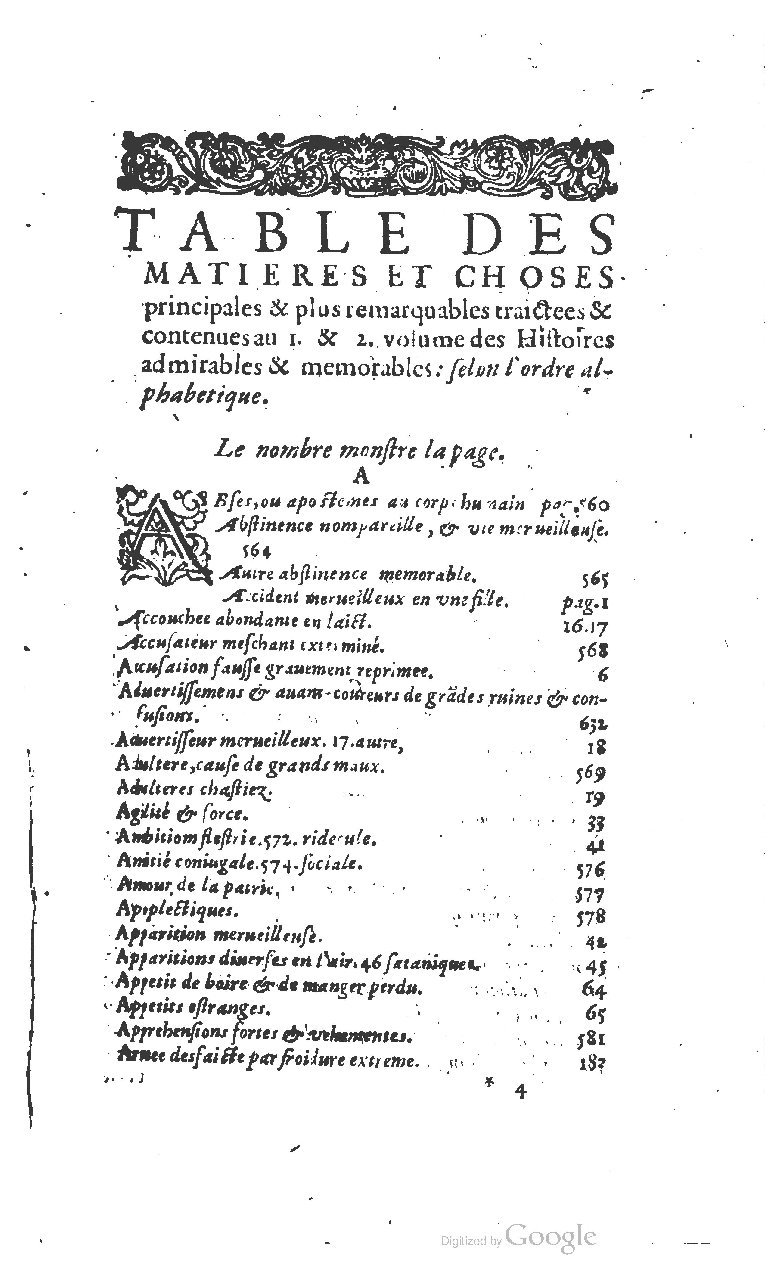 TABLE DES
MATIERES ET CHOSES
principales & plus remarquables traictees &
contenues au 1. & 2. volume des Histoires
admirables & memorables: ſelon l'ordre al-
phabetique.
Le nombre monſtre la page.
A
ABſes, ou apoſtemes au corps humain pag. 560
Abſtinence nompareille, & vie merueilleuſe.
564
Autre abſtinence memorable. 565
Accident merueilleux en vne fille. pag. 1
Accouchee abondante en laict. 16.17
Accuſateur meſchant exterminé. 568
Accuſation fauſſe grauement reprimee. 6
Aduertiſſemens & auant-coureurs de grãdes ruines & con-
fuſions. 632
Aduertiſſeur merueilleux. 17. autre, 18
Adultere, cauſe de grands maux. 569
Adulteres chaſtiez. 19
Agilité & force. 33
Ambition 572. ridecule. 41
Amitié coniugale. 574. ſociale. 576
Amour de la patrie. 577
Apoplectiques. 578
Apparition merueilleuſe. 42
Apparitions diuerſes en l'air. 46 ſataniques. 45
Appetit de boire & de manger perdu. 64
Appetits eſtranges. 65
Apprehenſions fortes & vehementes. 581
Armee desfaicte par froidure extreme. 187
* 4
Digitized by Google